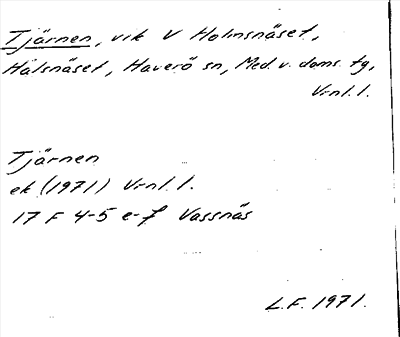 Tjärnen, vik V Holmsnäset,
Hålsnäset, Haverö sn, Med. v. doms. tg,
Vrnl. l.
Tjärnen
ek (1971) Vrnl. l.
17 F 4-5 e-f Vassnäs
L.F. 1971.